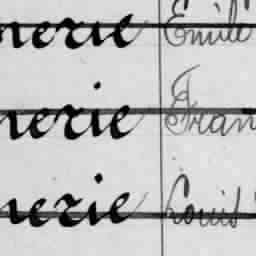 nerie Emile
nerie Fran
nerie Louis